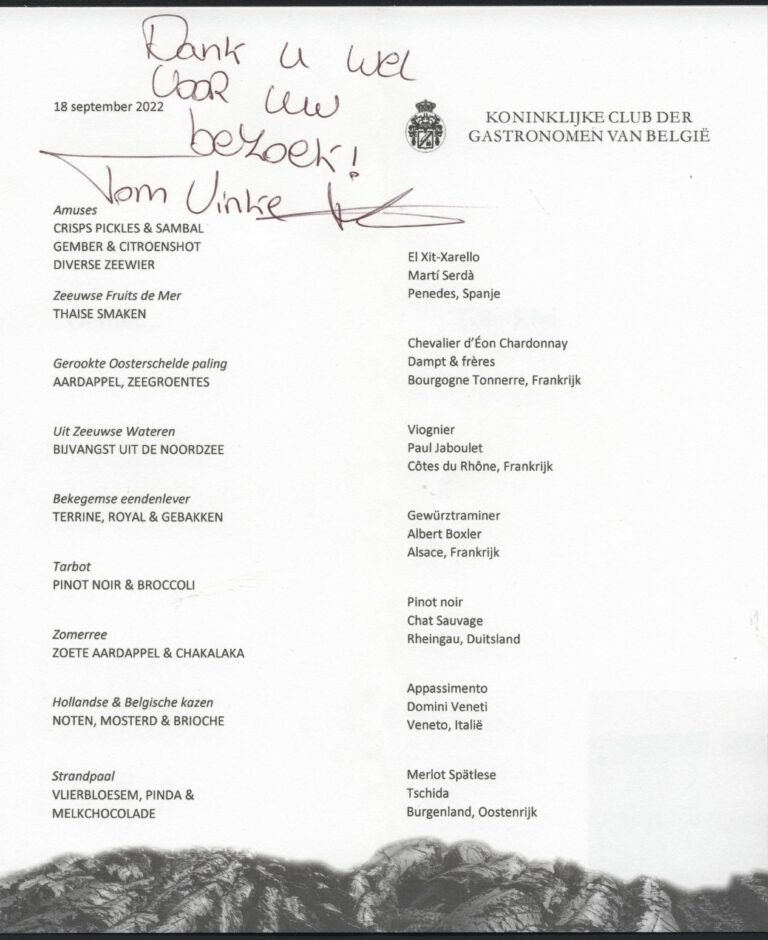 Dank u wel
voor uw
bezoek!
Tom Vinke
18 september 2022
KONINKLIJKE CLUB DER
GASTRONOMEN VAN BELGIË
Amuses
CRISPS PICKLES & SAMBAL
GEMBER & CITROENSHOT
DIVERSE ZEEWIER
Zeeuwse Fruits de Mer
THAISE SMAKEN
Gerookte Oosterschelde paling
AARDAPPEL, ZEEGROENTES
Uit Zeeuwse Wateren
BIJVANGST UIT DE NOORDZEE
Bekegemse eendenlever
TERRINE, ROYAL & GEBAKKEN
Tarbot
PINOT NOIR & BROCCOLI
Zomerree
ZOETE AARDAPPEL & CHAKALAKA
Hollandse & Belgische kazen
NOTEN, MOSTERD & BRIOCHE
Strandpaal
VLIERBLOESEM, PINDA &
MELKCHOCOLADE
El Xit-Xarello
Martí Serdà
Penedes, Spanje
Chevalier d'Éon Chardonnay
Dampt & frères
Bourgogne Tonnerre, Frankrijk
Viognier
Paul Jaboulet
Côtes du Rhône, Frankrijk
Gewürztraminer
Albert Boxler
Alsace, Frankrijk
Pinot noir
Chat Sauvage
Rheingau, Duitsland
Appassimento
Domini Veneti
Veneto, Italië
Merlot Spätlese
Tschida
Burgenland, Oostenrijk